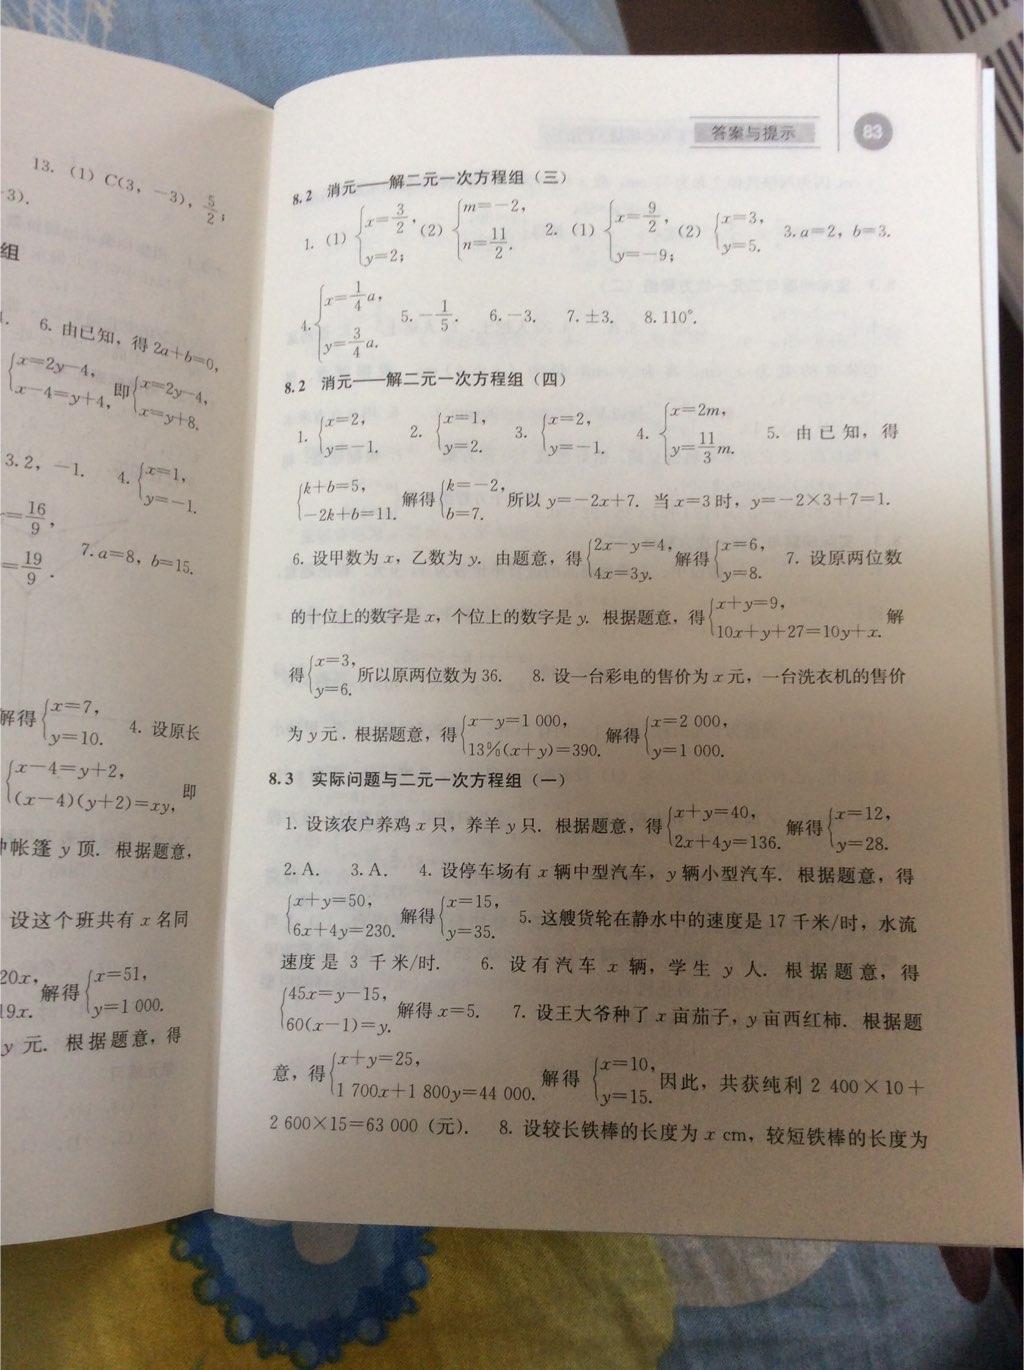 13. (1) C(3, −3), 5/2;
−3).
组
6. 由已知, 得 2a+b=0,
{x=2y−4, x−4=y+4, 即 {x=2y−4, x=y+8.
3. 2, −1. 4. {x=1, y=−1.
=16/9,
=19/9. 7. a=8, b=15.
解得 {x=7, y=10. 4. 设原长
{x−4=y+2, (x−4)(y+2)=xy, 即
帐篷 y 顶. 根据题意,
设这个班共有 x 名同
20x, 19x. 解得 {x=51, y=1 000.
y 元. 根据题意, 得
答案与提示 83
8.2 消元——解二元一次方程组（三）
1. (1) {x=3/2, y=2; (2) {m=−2, n=11/2. 2. (1) {x=9/2, y=−9; (2) {x=3, y=5. 3. a=2, b=3.
4. {x=1/4 a, y=3/4 a. 5. −1/5. 6. −3. 7. ±3. 8. 110°.
8.2 消元——解二元一次方程组（四）
1. {x=2, y=−1. 2. {x=1, y=2. 3. {x=2, y=−1. 4. {x=2m, y=11/3 m. 5. 由已知, 得
{k+b=5, −2k+b=11. 解得 {k=−2, b=7. 所以 y=−2x+7. 当 x=3 时, y=−2×3+7=1.
6. 设甲数为 x, 乙数为 y. 由题意, 得 {2x−y=4, 4x=3y. 解得 {x=6, y=8. 7. 设原两位数
的十位上的数字是 x, 个位上的数字是 y. 根据题意, 得 {x+y=9, 10x+y+27=10y+x. 解
得 {x=3, y=6. 所以原两位数为 36. 8. 设一台彩电的售价为 x 元, 一台洗衣机的售价
为 y 元. 根据题意, 得 {x−y=1 000, 13%(x+y)=390. 解得 {x=2 000, y=1 000.
8.3 实际问题与二元一次方程组（一）
1. 设该农户养鸡 x 只, 养羊 y 只. 根据题意, 得 {x+y=40, 2x+4y=136. 解得 {x=12, y=28.
2. A. 3. A. 4. 设停车场有 x 辆中型汽车, y 辆小型汽车. 根据题意, 得
{x+y=50, 6x+4y=230. 解得 {x=15, y=35. 5. 这艘货轮在静水中的速度是 17 千米/时, 水流
速度是 3 千米/时. 6. 设有汽车 x 辆, 学生 y 人. 根据题意, 得
{45x=y−15, 60(x−1)=y. 解得 x=5. 7. 设王大爷种了 x 亩茄子, y 亩西红柿. 根据题
意, 得 {x+y=25, 1 700x+1 800y=44 000. 解得 {x=10, y=15. 因此, 共获纯利 2 400×10+
2 600×15=63 000 (元). 8. 设较长铁棒的长度为 x cm, 较短铁棒的长度为